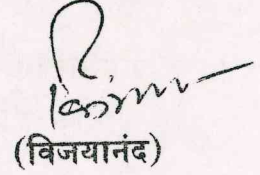 (विजयानंद)